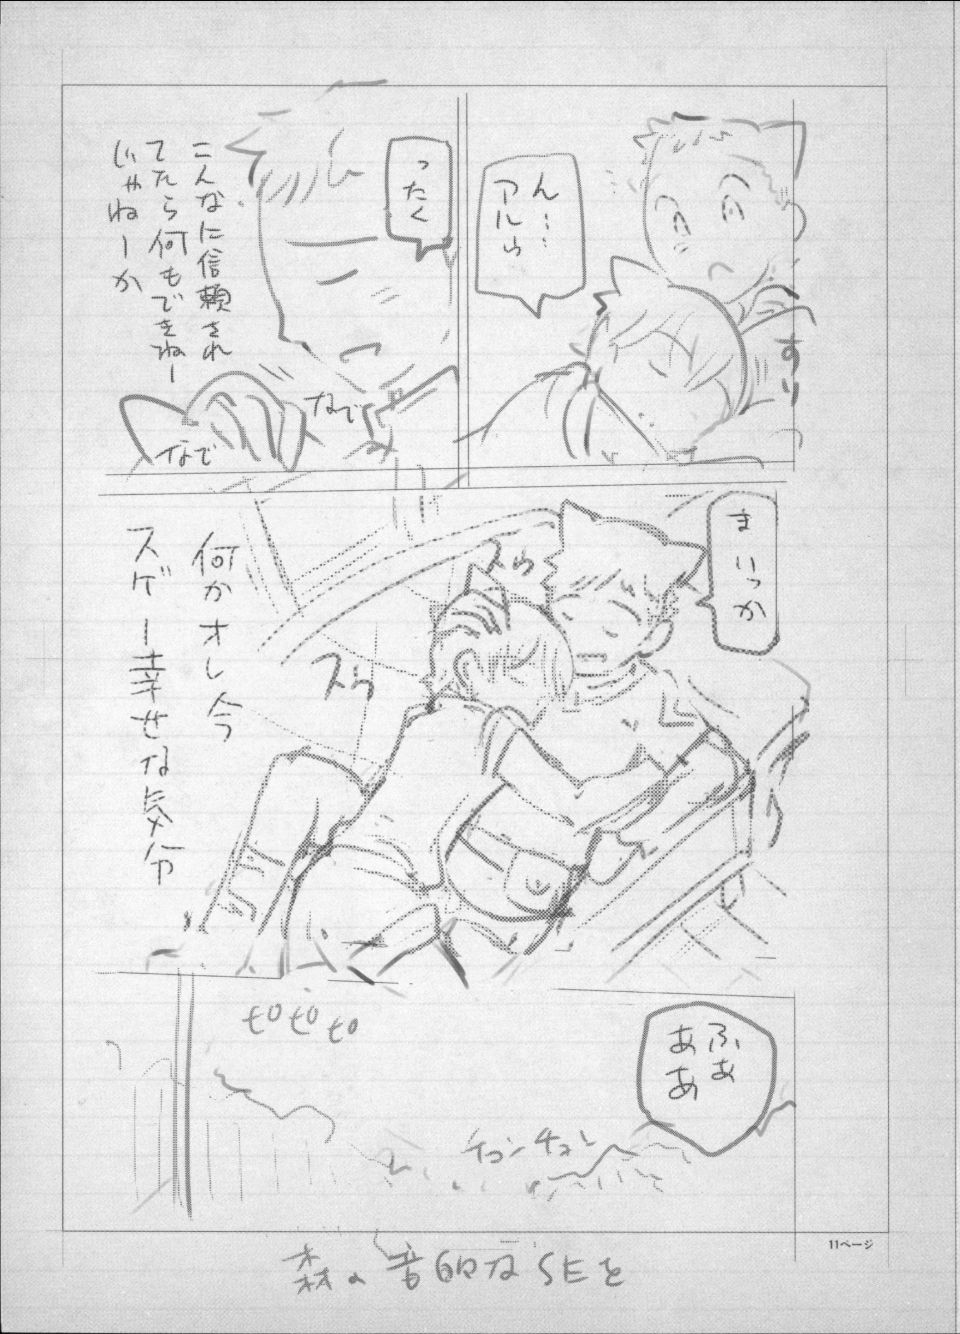 ん…
アルゥ
すり
ったく
こんなに信頼され
てたら何もできねー
じゃねーか
なで
なで
ま いっか
スゥ
スゥ
何かオレ今
スゲー幸せな気分
ふぁ
ああ
ピピピ
チュンチュン
森の音的なSEを
11ページ